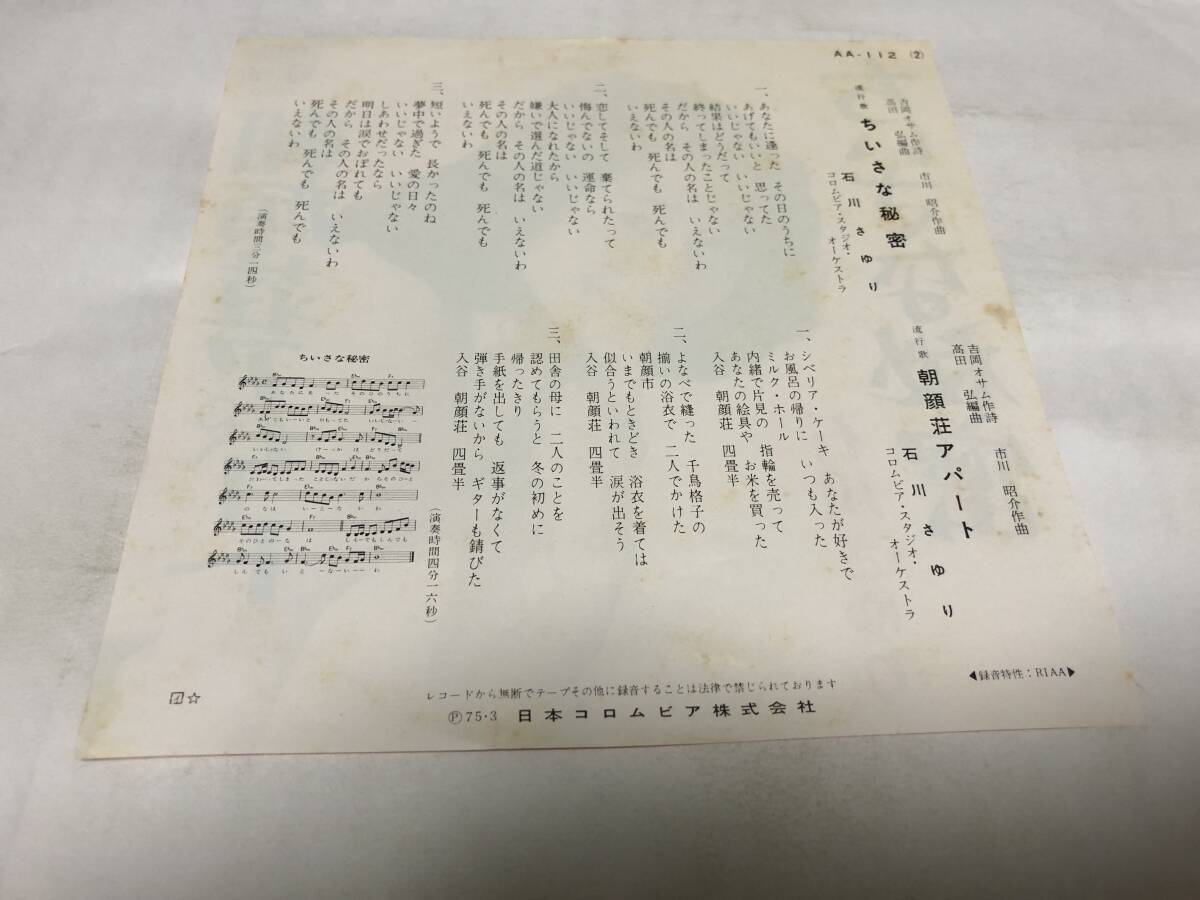 AA-112 (2)
吉岡オサム作詩
高田 弘編曲
市川 昭介作曲
流行歌 ちいさな秘密
石川さゆり
コロムビア・スタジオ・
オーケストラ
一、あなたに逢った その日のうちに
あげてもいいと 思ってた
いいじゃない いいじゃない
結果はどうだって
終ってしまったことじゃない
だから その人の名は いえないわ
その人の名は
死んでも 死んでも 死んでも
いえないわ
二、恋してそして 棄てられたって
悔んでないの 運命なら
いいじゃない いいじゃない
大人になれたから
嫌いで選んだ道じゃない
だから その人の名は いえないわ
その人の名は
死んでも 死んでも 死んでも
いえないわ
三、短いようで 長かったのね
夢中で過ぎた 愛の日々
いいじゃない いいじゃない
しあわせだったなら
明日は涙でおぼれても
だから その人の名は いえないわ
その人の名は
死んでも 死んでも 死んでも
いえないわ
(演奏時間三分一四秒)
吉岡オサム作詩
高田 弘編曲
市川 昭介作曲
流行歌 朝顔荘アパート
石川さゆり
コロムビア・スタジオ・
オーケストラ
一、シベリア・ケーキ あなたが好きで
お風呂の帰りに いつも入った
ミルク・ホール
内緒で片見の 指輪を売って
あなたの絵具や お米を買った
入谷 朝顔荘 四畳半
二、よなべで縫った 千鳥格子の
揃いの浴衣で 二人でかけた
朝顔市
いまでもときどき 浴衣を着ては
似合うといわれて 涙が出そう
入谷 朝顔荘 四畳半
三、田舎の母に 二人のことを
認めてもらうと 冬の初めに
帰ったきり
手紙を出しても 返事がなくて
弾き手がないから ギターも錆びた
入谷 朝顔荘 四畳半
(演奏時間四分一六秒)
ちいさな秘密
◀録音特性:RIAA▶
レコードから無断でテープその他に録音することは法律で禁じられております
Ⓟ75・3 日本コロムビア株式会社
☆